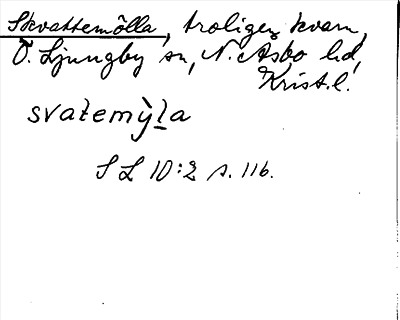 Skvattemölla, troligen kvarn,
Ö. Ljungby sn, N. Åsbo hd,
Krist. l.
svatemỳla
SL 10:2 s. 116.